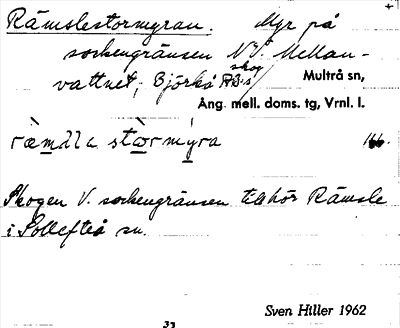 Rämslestormyran. Myr på
sockengränsen NV. Mellan-
vattnet, Björkå skog
Multrå sn,
Ång. mell. doms. tg, Vrnl. l.
Skogen V. sockengränsen tillhör Rämsle
i Sollefteå sn.
Sven Hiller 1962